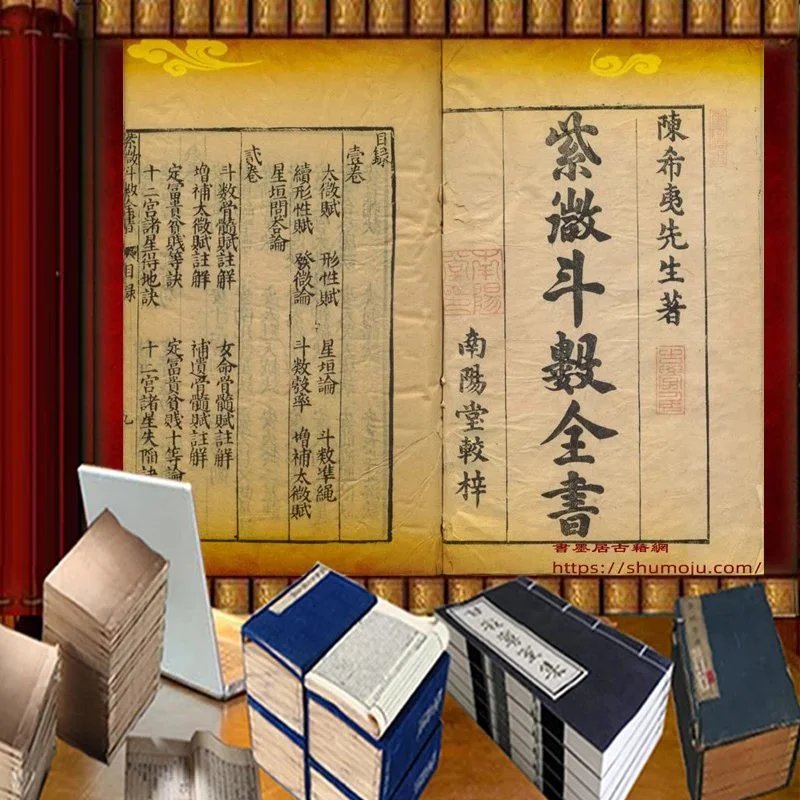 陳希夷先生著
紫微斗數全書
南陽堂較梓
書墨居古籍網
https://shumoju.com/
目録
壹卷
太微賦 形性賦 星垣論 斗数準繩
續形性賦 發微論 斗数彀率 増補太微賦
星垣問答論
貳卷
斗数骨髓賦註解 女命骨髓賦註解
増補太微賦註解 補遺骨髓賦註解
定富貴貧賤等訣 定富貴貧賤十等論
十二宮諸星得地訣 十二宮諸星失陷訣
紫微斗數全書 目録